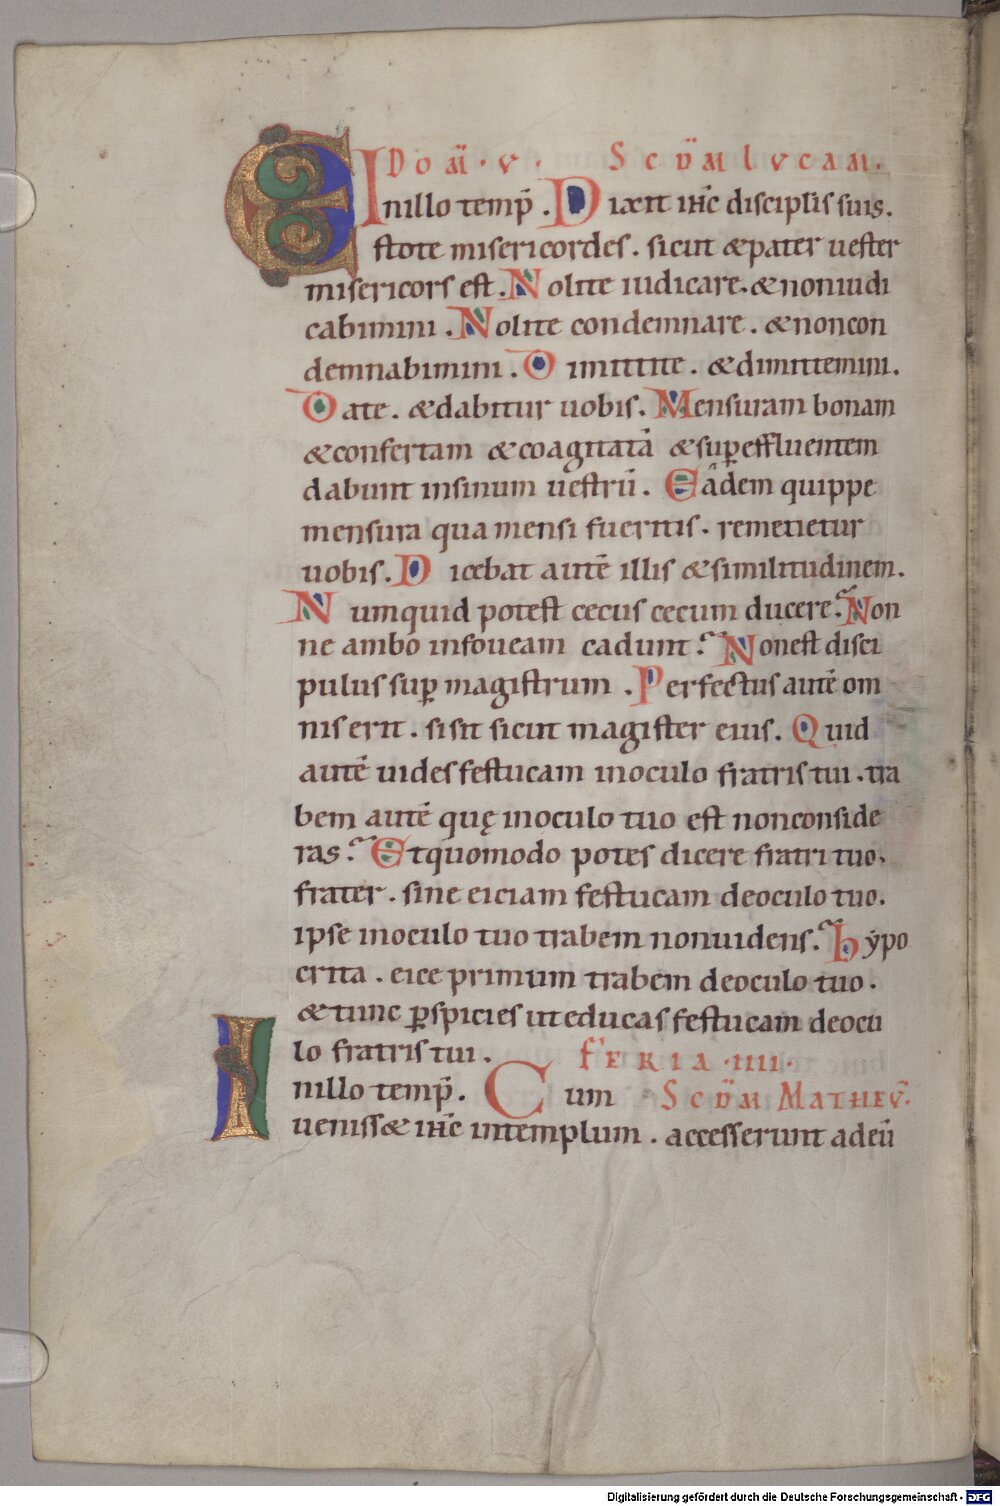 DOM̄ · V · SCD̄M LVCAM ·
In illo temp̄. Dixit ih̄c disciplis suis.
Estote misericordes. sicut & pater uester
misericors est. Nolite iudicare. & non iudi
cabimini. Nolite condemnare. & non con
demnabimini. Dimittite. & dimittemini.
Date. & dabitur uobis. Mensuram bonam
& confertam & coagitatā & sup̄effluentem
dabunt in sinum uestrū. Eadem quippe
mensura qua mensi fueritis. remetietur
uobis. Dicebat autē illis & similitudinem.
Numquid potest cecus cecum ducere? Non
ne ambo in foueam cadunt? Non est disci
pulus sup̄ magistrum. Perfectus autē om
nis erit. si sit sicut magister eius. Quid
autē uides festucam in oculo fratris tui. tra
bem autē quę in oculo tuo est non conside
ras? Et quomodo potes dicere fratri tuo.
frater. sine eiciam festucam de oculo tuo.
ipse in oculo tuo trabem non uidens? hẏpo
crita. eice primum trabem de oculo tuo.
& tunc p̄spicies ut educas festucam de ocu
lo fratris tui. FERIA · IIII ·
In illo temp̄. Cum SCD̄M MATHEV̄.
ueniss& ih̄c in templum. accesserunt ad eū
Digitalisierung gefördert durch die Deutsche Forschungsgemeinschaft - DFG